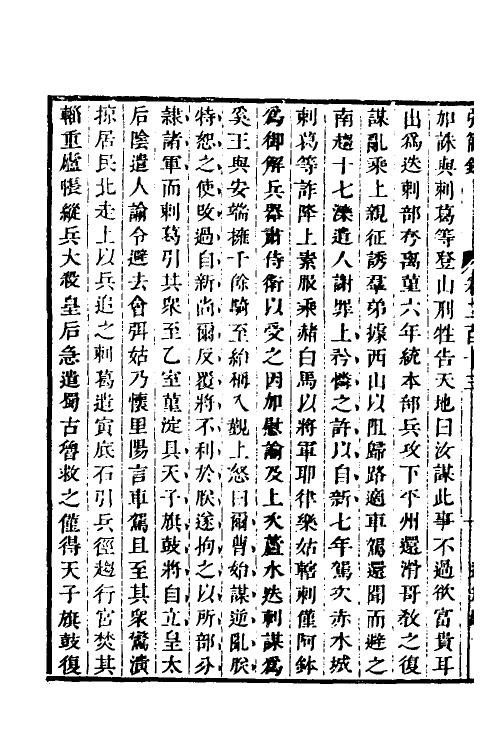 加誅與剌葛等登山刑牲告天地曰汝謀此事不過欲富貴耳
出爲迭剌部夷离菫六年統本部兵攻下平州還滑哥敎之復
謀亂乘上親征誘羣弟據西山以阻歸路適車駕還聞而避之
南趨十七濼遣人謝罪上矜憐之許以自新七年駕次赤水城
剌葛等詐降上素服乘赭白馬以將軍耶律樂姑轄剌僅阿鉢
爲御解兵器肅侍衛以受之因加慰諭及上次蘆水迭剌謀爲
奚王與安端擁千餘騎至紿稱入覲上怒曰爾曹始謀逆亂朕
特恕之使攺過自新尚爾反覆將不利於朕遂拘之以所部分
隸諸軍而剌葛引其衆至乙室菫淀具天子旗鼓將自立皇太
后陰遣人諭令避去會弭姑乃懷里陽言車駕且至其衆驚潰
掠居民北走上以兵追之剌葛遣寅底石引兵徑趨行宮焚其
輜重廬帳縱兵大殺皇后急遣蜀古魯救之僅得天子旗鼓復